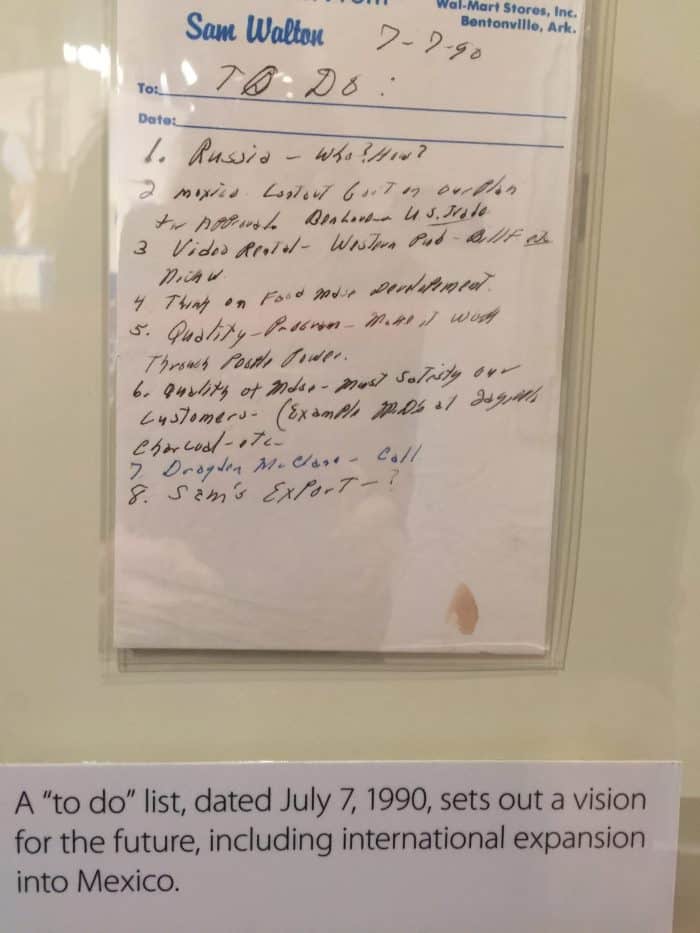 Wal-Mart Stores, Inc.
Bentonville, Ark.
Sam Walton
7-7-90
To: TO DO:
Date:
1. Russia - Who? How?
2 Mexico Contact Gov't on our Plan
for Approval U.S. Trade
3 Video Rental - Western Pub - Bill F etc
Nick W.
4 Think on Food Mdse Development.
5. Quality - Program - Make it work
Through People Power.
6. Quality of Mdse - Must Satisfy our
Customers - (Example at
Charcoal - etc -
7. Call
8. Sam's Export - ?
A “to do” list, dated July 7, 1990, sets out a vision
for the future, including international expansion
into Mexico.